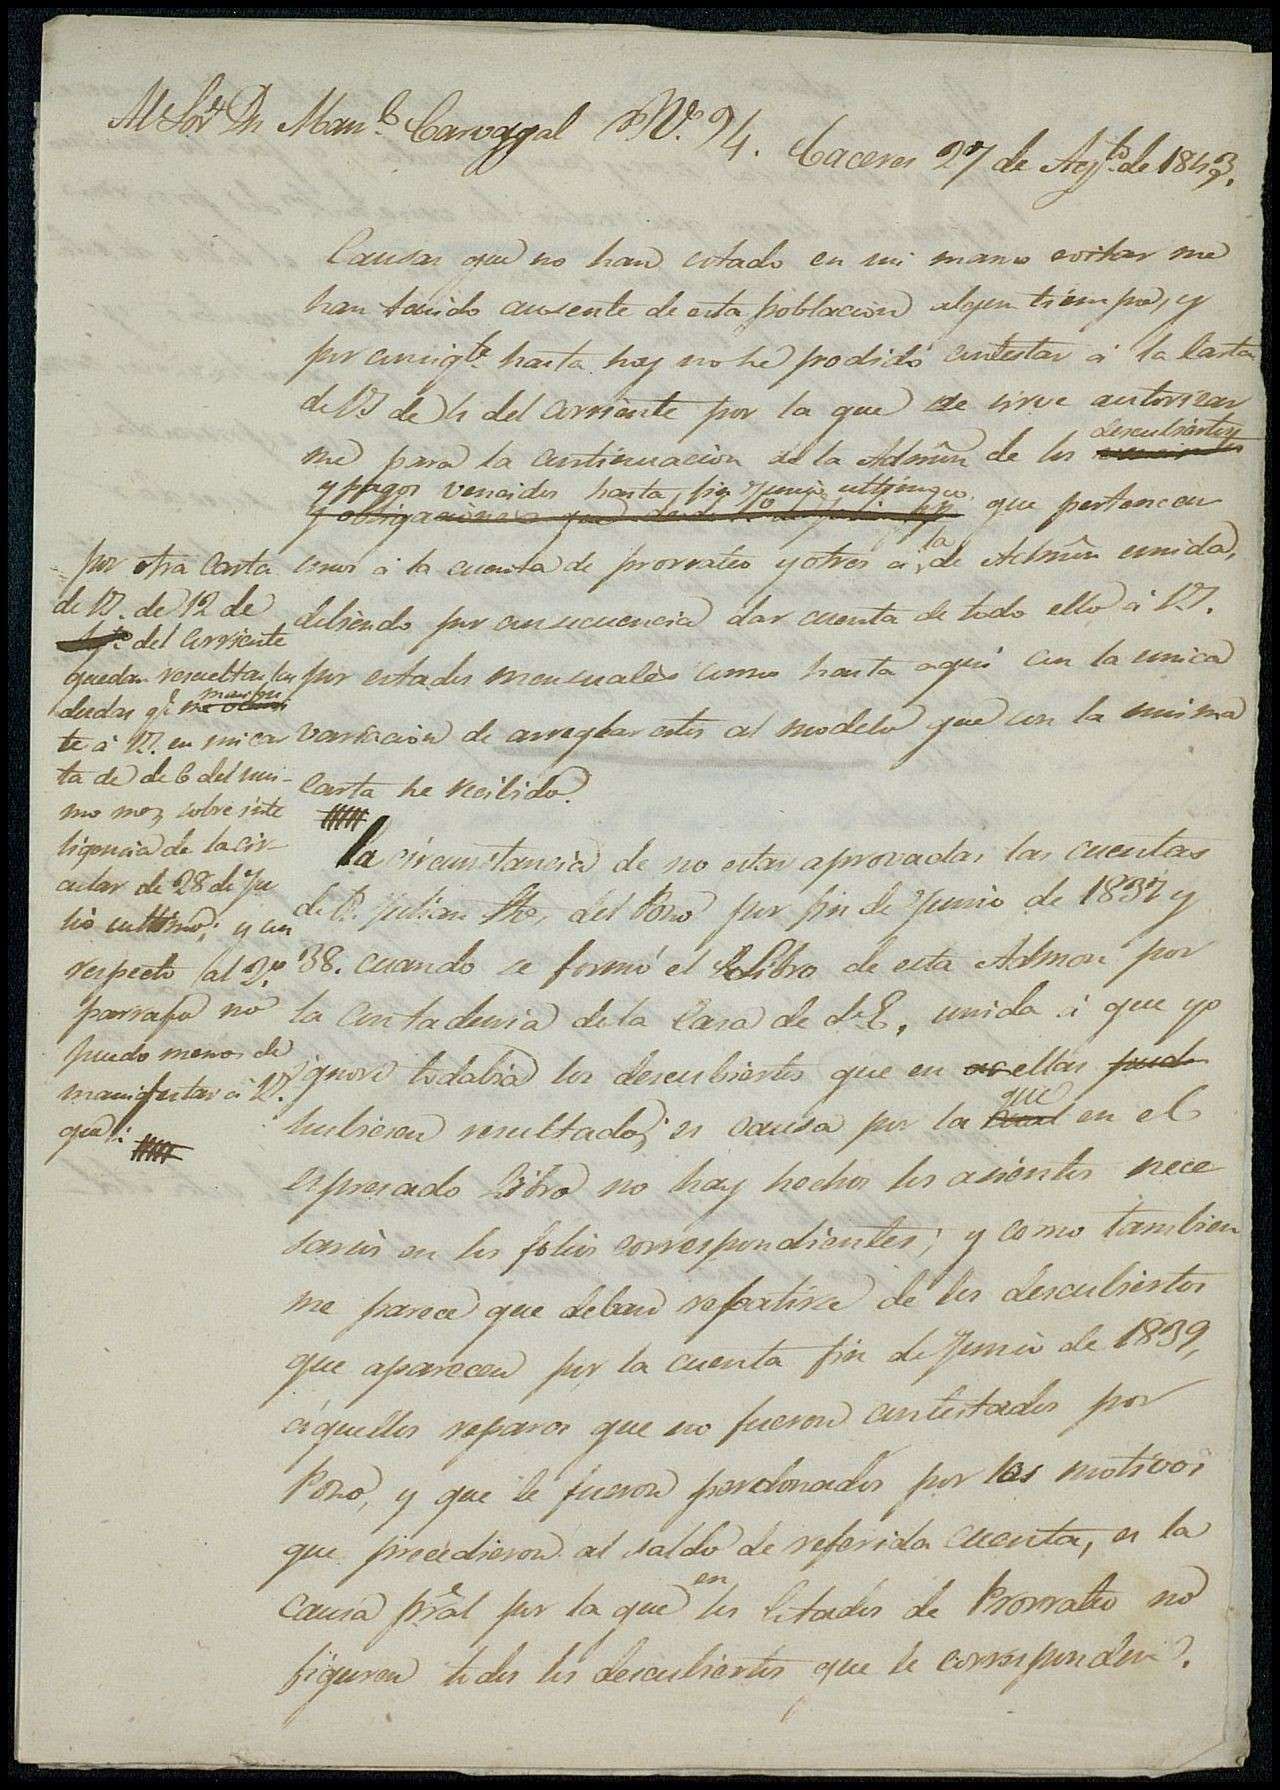 Al Sor. Dn Manl. Carvajal Nº. 94.
Caceres 27 de Agto. de 1843.
Causas que no han estado en mi mano evitar me
han tenido ausente de esta poblacion algun tiempo, y
por consigte. hasta hoy no he podido contestar á la carta
de VS de 4 del corriente por la que se sirve autorizar
me para la continuacion de la Admon de los descubiertos
y pagos vencidos hasta fin Junio ultimo que pertenecen
unos á la cuenta de prorrateo y otros a la de Admon unida,
debiendo por consecuencia dar cuenta de todo ello á VS.
por estados mensuales como hasta aqui con la unica
variacion de arreglar estos al modelo que con la misma
carta he recibido.
por otra carta
de VS. de 12 de
del corriente
quedan resueltas las
dudas qe. manifes
te á VS. en mi car
ta de de 6 del mis-
mo mes, sobre inte
ligencia de la cir-
cular de 28 de Ju
lio ultimo; y con
respecto al 3er.
parrafo no
puedo menos de
manifestar á VS.
que:
La circunstancia de no estar aprovadas las cuentas
de Dn. Julian del Pozo por fin de Junio de 1837 y
38. cuando se formó el Libro de esta Admon por
la Contaduria de la Casa de de E, unida á que yo
ignoro todabia los descubiertos que en ellas
hubiesen resultado; es causa por la que en el
espresado Libro no hay hechos los asientos nece
sarios en los folios correspondientes; y como tambien
me parece que deban rebatirse de los descubiertos
que aparecen por la cuenta fin de Junio de 1839,
aquellos reparos que no fueron contestados por
Pozo, y que le fueron perdonados por los motivos
que precedieron al saldo de referida cuenta, es la
causa pral por la que en los Estados de Prorrateo no
figuren todos los descubiertos que le corresponden.